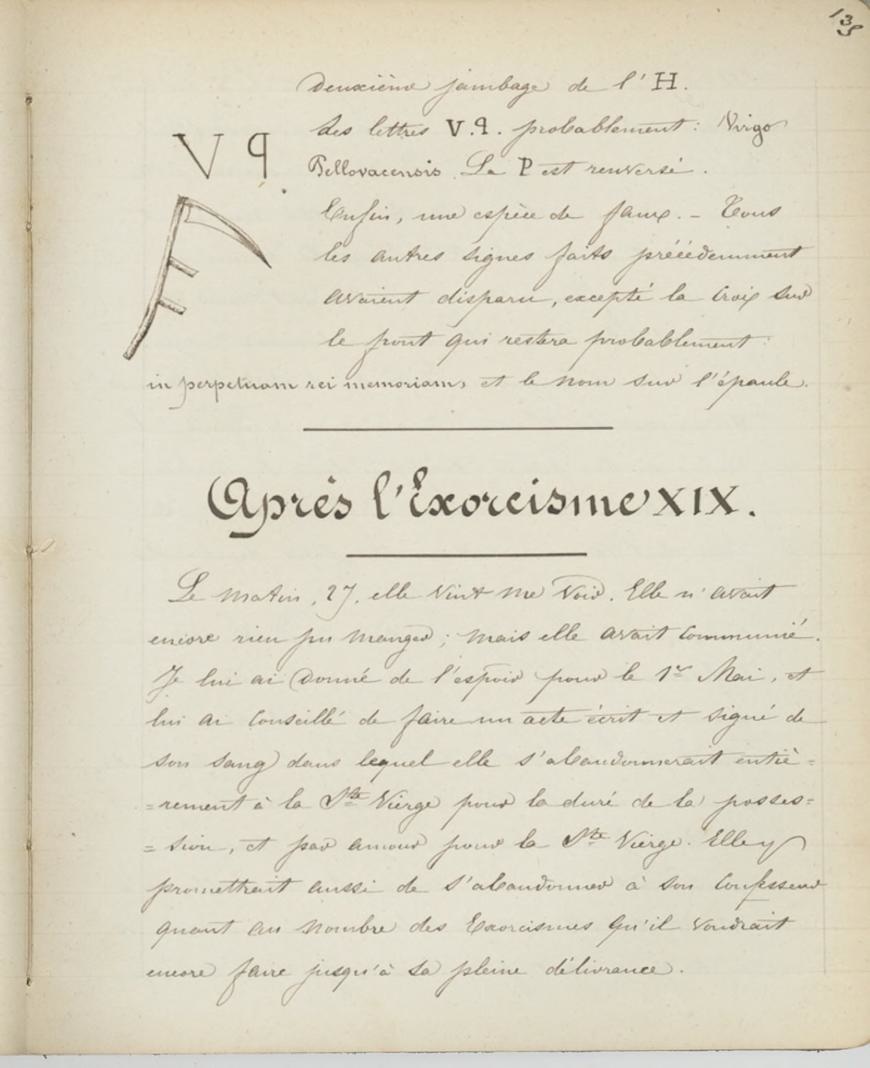 135
deuxième jambage de l'H.
des lettres V.q. probablement : Virgo
V q. Bellovacensis. Le P est renversé.
Enfin, une espèce de faux. – Tous
les autres signes faits précédemment
avaient disparu, excepté la Croix sur
le front qui restera probablement :
in perpetuam rei memoriam, et le nom sur l'épaule.
Après l'Exorcisme XIX.
Le matin, 27, elle vint me voir. Elle n'avait
encore rien pu manger ; mais elle avait communié.
Je lui ai donné de l'espoir pour le 1er Mai, et
lui ai conseillé de faire un acte écrit et signé de
son sang dans lequel elle s'abandonnerait entiè=
=rement à la Ste Vierge pour la duré de la posses=
=sion, et par amour pour la Ste Vierge. Elle y
promettrait aussi de s'abandonner à son Confesseur
quant au nombre des Exorcismes qu'il voudrait
encore faire jusqu'à sa pleine délivrance.